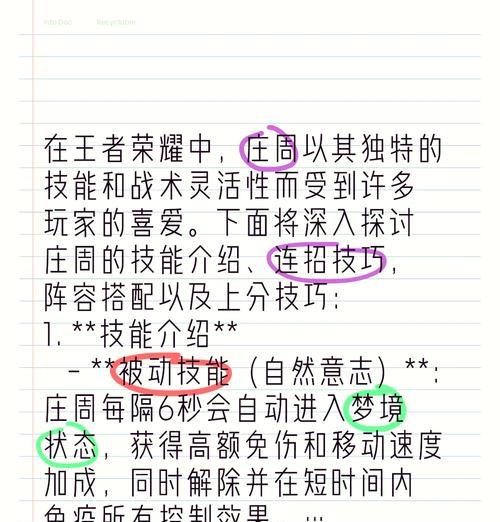 在王者荣耀中，庄周以其独特的
技能和战术灵活性而受到许多
玩家的喜爱。下面将深入探讨
庄周的技能介绍、连招技巧，
阵容搭配以及上分技巧：
1. **技能介绍**
- **被动技能（自然意志）**：
庄周每隔6秒会自动进入梦境
状态，获得高额免伤和移动速度
加成，同时解除并在短时间内
免疫所有控制效果。...